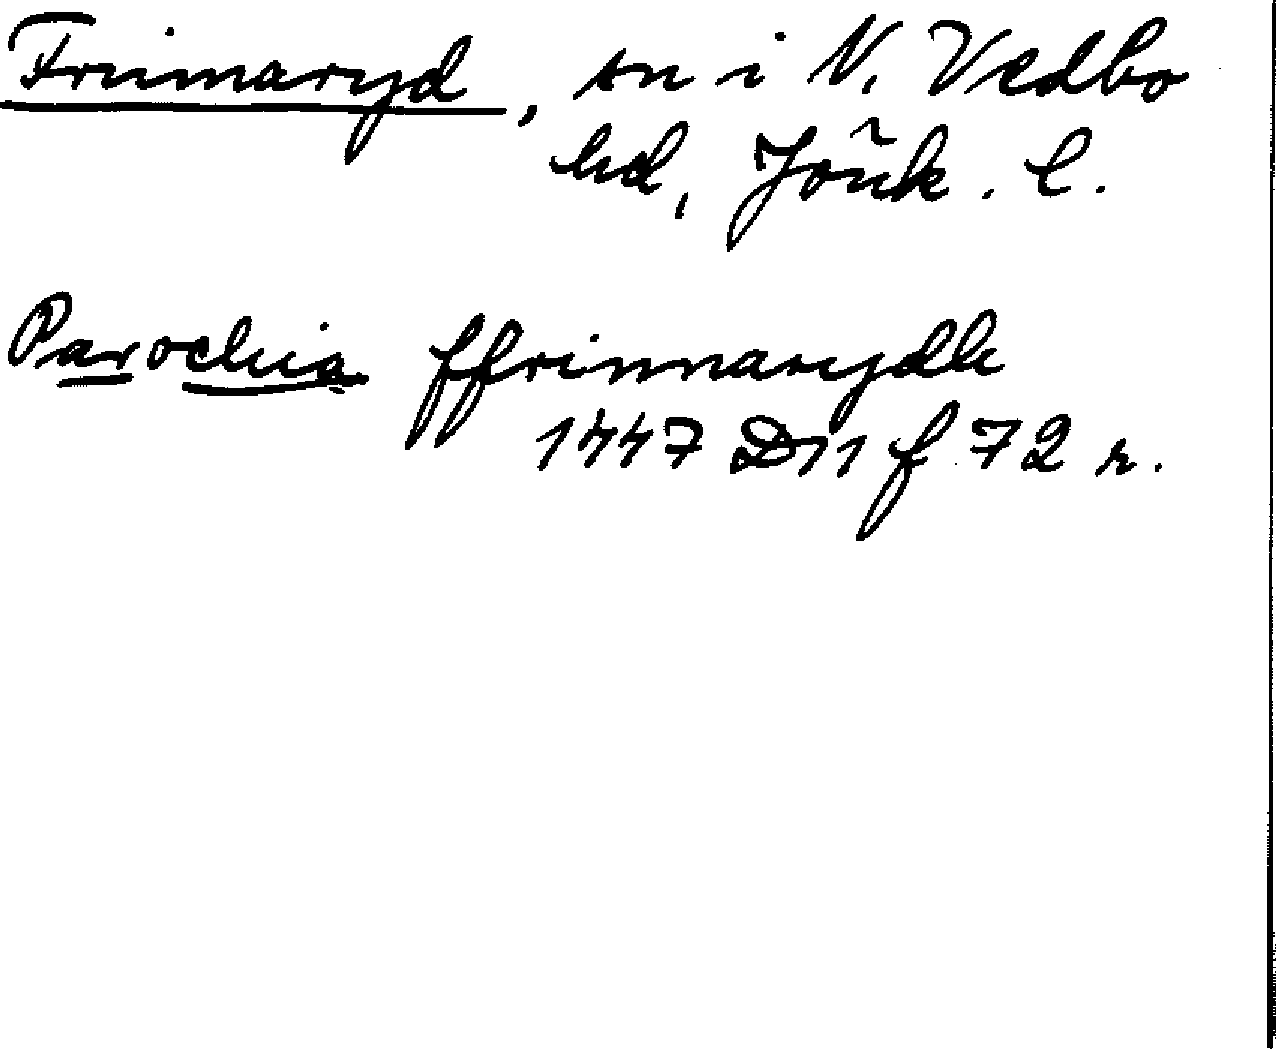 Frinnaryd, sn i N. Vedbo
hd, Jönk. l.
Parochia ffrinnarydh
1447 D 11 f 72 r.